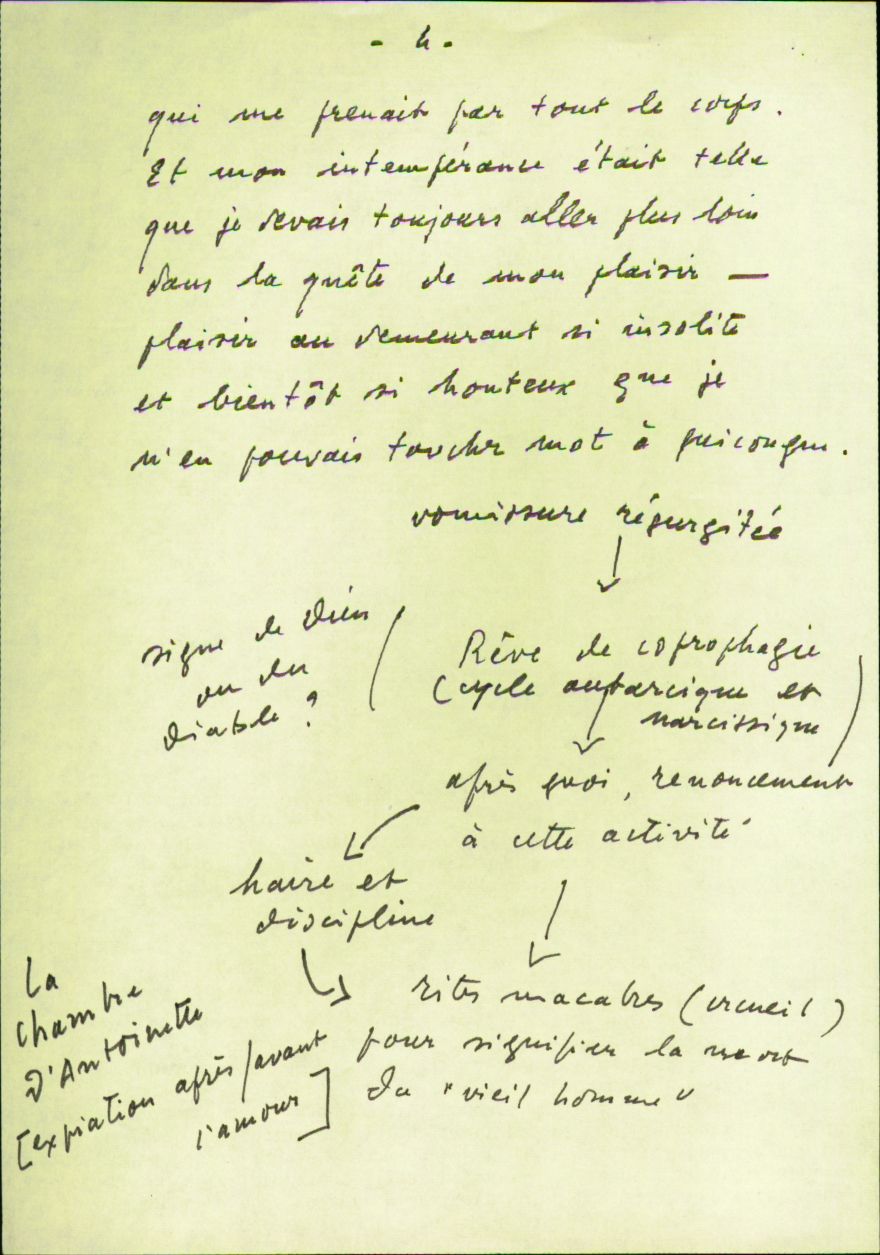 - 4 -
qui me prenait par tout le corps.
Et mon intempérance était telle
que je devais toujours aller plus loin
dans la quête de mon plaisir —
plaisir au demeurant si insolite
et bientôt si honteux que je
n'en pouvais toucher mot à quiconque.
vomissure régurgitée
signe de Dieu
ou du
diable ?
Rêve de coprophagie
(cycle autarcique et
narcissique)
après quoi, renoncement
à cette activité
haire et
discipline
rites macabres (cercueil)
pour signifier la mort
du "vieil homme"
La
chambre
d'Antoinette
[expiation après/avant
l'amour]